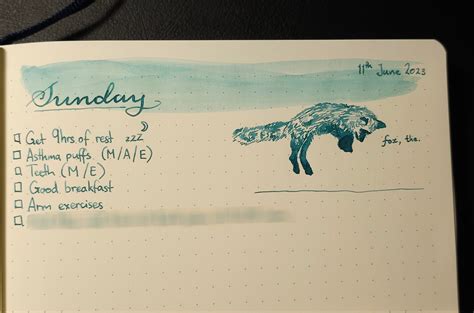 11th June 2023
Sunday
Get 9hrs of rest zzz
Asthma puffs (M/A/E)
Teeth (M/E)
Good breakfast
Arm exercises
fox, the.